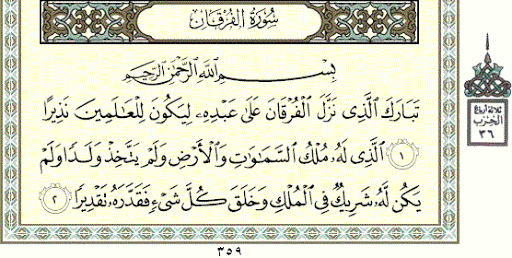 سُورَةُ الفُرْقَان
بِسْمِ اللَّهِ الرَّحْمَٰنِ الرَّحِيمِ
تَبَارَكَ الَّذِى نَزَّلَ الْفُرْقَانَ عَلَىٰ عَبْدِهِۦ لِيَكُونَ لِلْعَٰلَمِينَ نَذِيرًا
١ الَّذِى لَهُۥ مُلْكُ السَّمَٰوَٰتِ وَالْأَرْضِ وَلَمْ يَتَّخِذْ وَلَدًا وَلَمْ
يَكُن لَّهُۥ شَرِيكٌ فِى الْمُلْكِ وَخَلَقَ كُلَّ شَىْءٍ فَقَدَّرَهُۥ تَقْدِيرًا ٢
ثلاثة أرباع
الحِزب
٣٦
٣٥٩